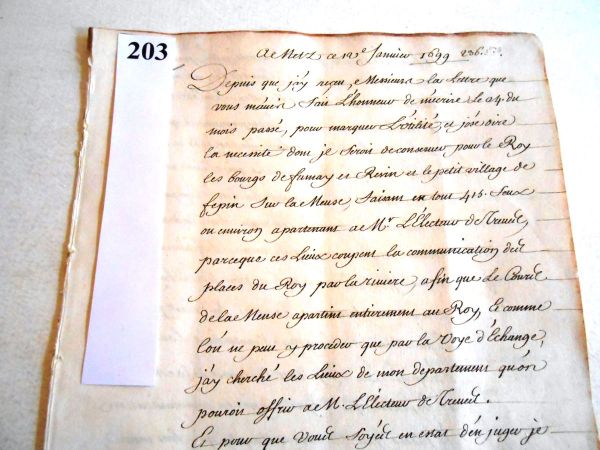 203
A Metz ce 12e Janvier 1699 236.
Depuis que j'ay reçu, Messieurs la Lettre que
vous m'avéz fait L'honneur de m'ecrire le 24. du
mois passé, pour marquer L'utilité, et j'ose dire
la necessité dont je seroit de conserver pour le Roy
les bourgs de fumay et Revin et le petit village de
fepin sur la Meuse, faisans en tout 415. feux
ou environ apartenant a Mr. L'Electeur de Treves,
parceque ces Lieux coupent la communication des
places du Roy par la riviere, afin que Le Cours
de la Meuse apartint entierement au Roy, Et comme
l'on ne peut y procéder que par la Voye d'Echange,
j'ay cherché les Lieux de mon departement qu'on
pouroit offrir a M. L'Electeur de Treves.
Et pour que Vous Soyés en etat d'en juger je